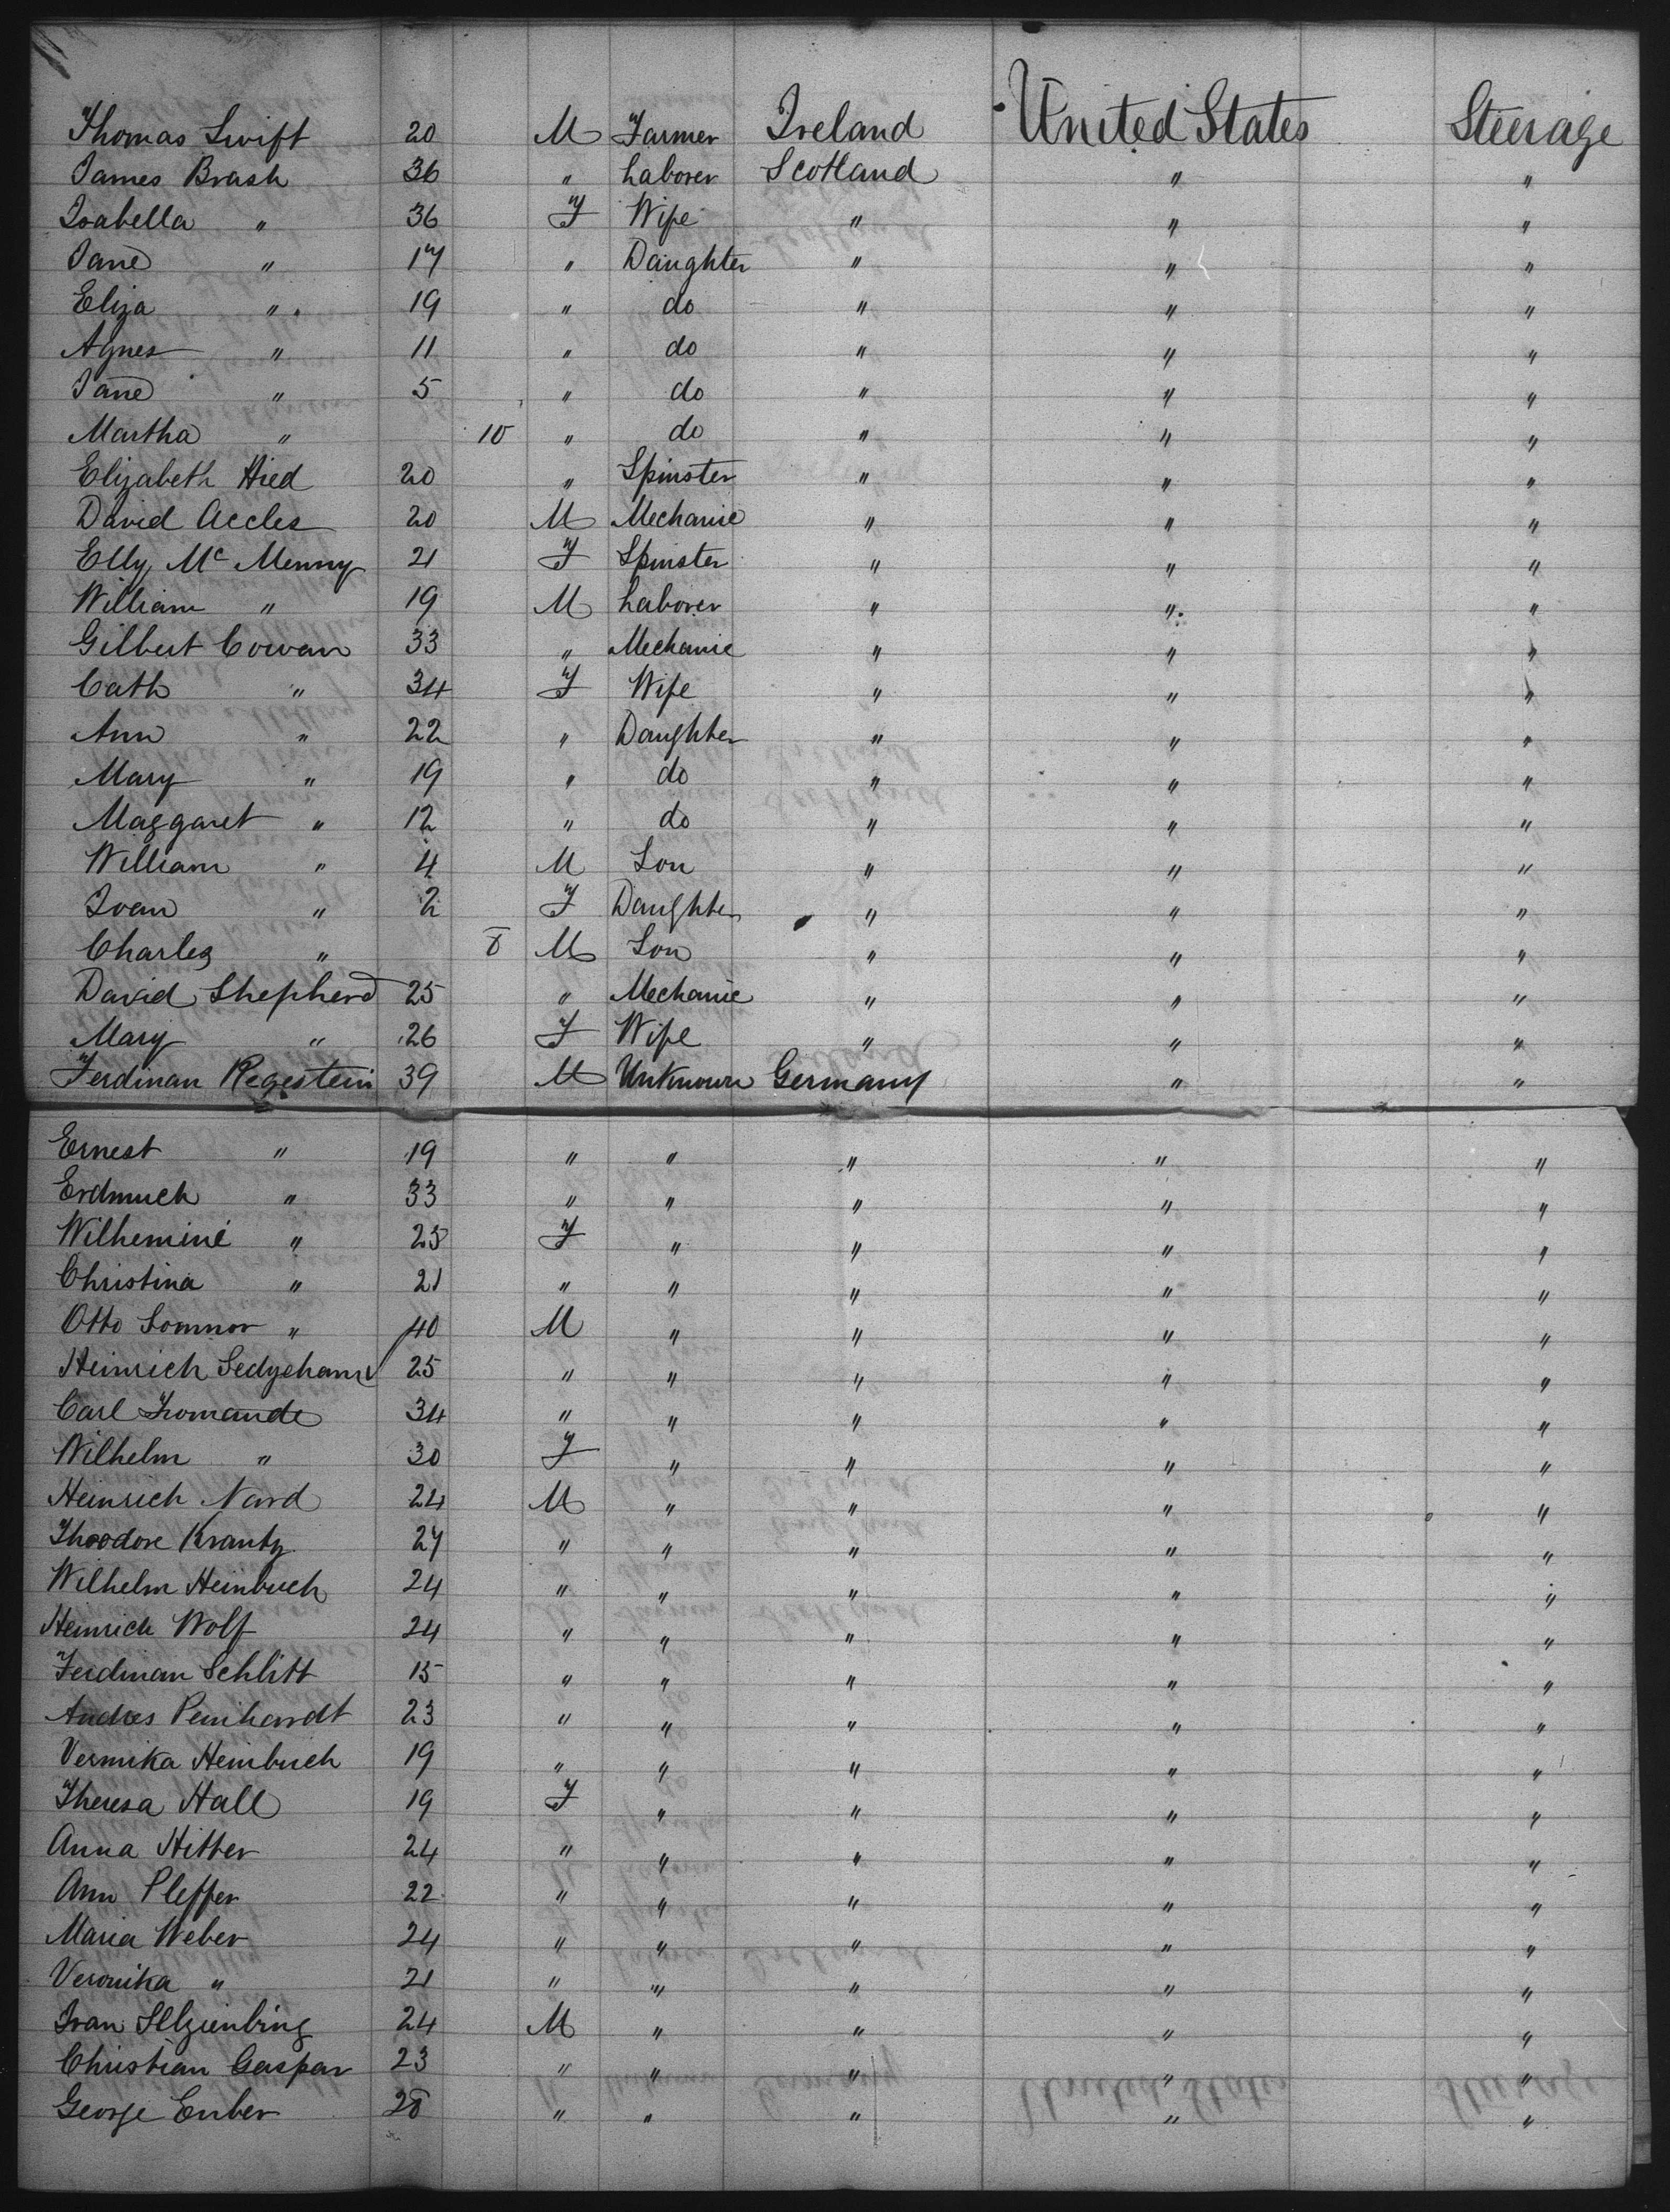 Thomas Swift 20 M Farmer Ireland United States Steerage
James Brash 36 " Laborer Scotland " "
Isabella " 36 F Wife " " "
Jane " 17 " Daughter " " "
Eliza " 19 " do " " "
Agnes " 11 " do " " "
Jane " 5 " do " " "
Martha " 10 " do " " "
Elizabeth Hied 20 " Spinster " " "
David Accles 20 M Mechanic " " "
Elly Mc Menny 21 F Spinster " " "
William " 19 M Laborer " " "
Gilbert Cowan 33 " Mechanic " " "
Cath " 34 F Wife " " "
Ann " 22 " Daughter " " "
Mary " 19 " do " " "
Maggaret " 12 " do " " "
William " 4 M Son " " "
Joan " 2 F Daughter " " "
Charles " 8 M Son " " "
David Shepherd 25 " Mechanic " " "
Mary " 26 F Wife " " "
Ferdinan Regestein 39 M Unknown Germany " "
Ernest " 19 " " " " "
Erdmuch " 33 " " " " "
Wilhemine " 25 F " " " "
Christina " 21 " " " " "
Otto Sommor " 40 M " " " "
Heinrich 25 " " " " "
Carl Fromande 34 " " " " "
Wilhelm " 30 F " " " "
Heinrich Nard 24 M " " " "
Theodore Krantz 27 " " " " "
Wilhelm Heinbuch 24 " " " " "
Heinrich Wolf 24 " " " " "
Ferdinan Schlitt 15 " " " " "
Andres Peinhardt 23 " " " " "
Vermika Heinbuch 19 " " " " "
Theresa Hall 19 F " " " "
Anna Hitter 24 " " " " "
Ann Pleffer 22 " " " " "
Maria Weber 24 " " " " "
Veronika " 21 " " " " "
Ivan 24 M " " " "
Christian Gaspar 23 " " " " "
George Enber 28 " " " " "